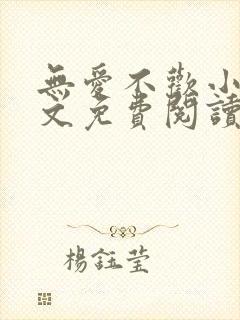 無愛不歡小
文免費閱讀
楊鈺瑩